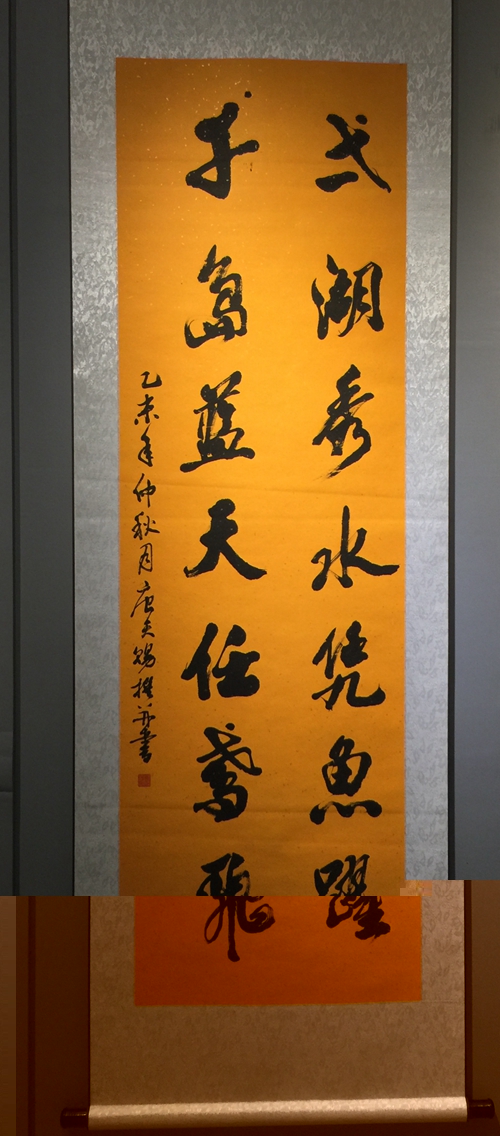 弌湖秀水凭魚躍
千島藍天任鳶飛
乙未年仲秋月唐天賜撰并書